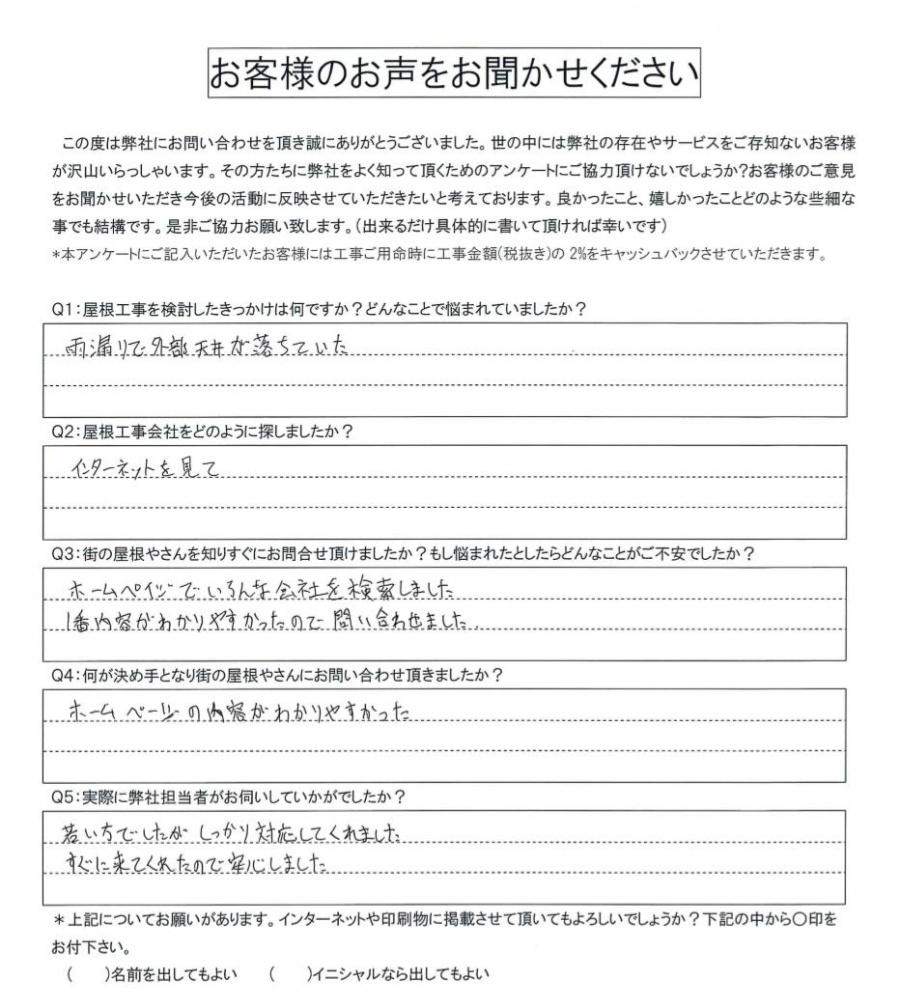 お客様のお声をお聞かせください
この度は弊社にお問い合わせを頂き誠にありがとうございました。世の中には弊社の存在やサービスをご存知ないお客様
が沢山いらっしゃいます。その方たちに弊社をよく知って頂くためのアンケートにご協力頂けないでしょうか?お客様のご意見
をお聞かせいただき今後の活動に反映させていただきたいと考えております。良かったこと、嬉しかったことどのような些細な
事でも結構です。是非ご協力お願い致します。(出来るだけ具体的に書いて頂ければ幸いです)
*本アンケートにご記入いただいたお客様には工事ご用命時に工事金額(税抜き)の 2%をキャッシュバックさせていただきます。
Q1:屋根工事を検討したきっかけは何ですか?どんなことで悩まれていましたか?
雨漏りで外部天井が落ちていた
Q2:屋根工事会社をどのように探しましたか?
インターネットを見て
Q3:街の屋根やさんを知りすぐにお問合せ頂けましたか?もし悩まれたとしたらどんなことがご不安でしたか?
ホームペイジでいろんな会社を検索しました
1番内容がわかりやすかったので問い合わせました.
Q4:何が決め手となり街の屋根やさんにお問い合わせ頂きましたか?
ホームページの内容がわかりやすかった
Q5:実際に弊社担当者がお伺いしていかがでしたか?
若い方でしたがしっかり対応してくれました
すぐに来てくれたので安心しました
*上記についてお願いがあります。インターネットや印刷物に掲載させて頂いてもよろしいでしょうか?下記の中から〇印を
お付下さい。
(　　)名前を出してもよい　　(　　)イニシャルなら出してもよい